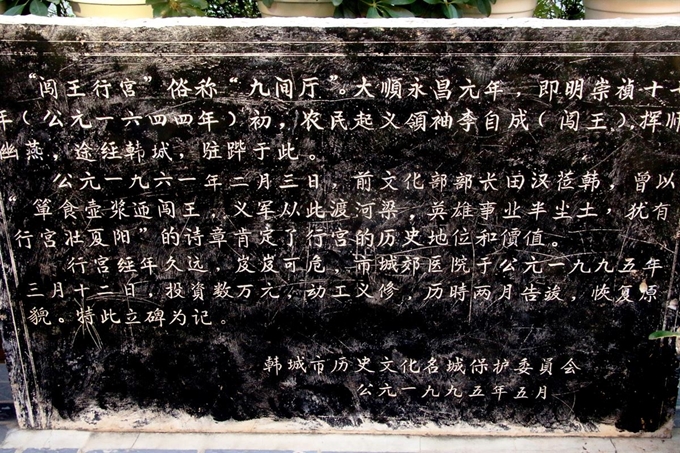 “闯王行宫”俗称“九间厅”。大順永昌元年，即明崇禎十七
年（公元一六四四年）初，农民起义领袖李自成（闯王），挥师
幽燕，途经韩城，驻跸于此。
公元一九六一年二月三日，前文化部部长田汉莅韩，曾以
“箪食壶浆迎闯王，义军从此渡河梁，英雄事业半尘土，犹有
行宫壮夏阳”的诗章肯定了行宫的历史地位和價值。
行宫经年久远，岌岌可危，市城郊医院于公元一九九五年
三月十二日，投资数万元，动工义修，历時两月告竣，恢复原
貌。特此立碑为记。
韩城市历史文化名城保护委員会
公元一九九五年五月